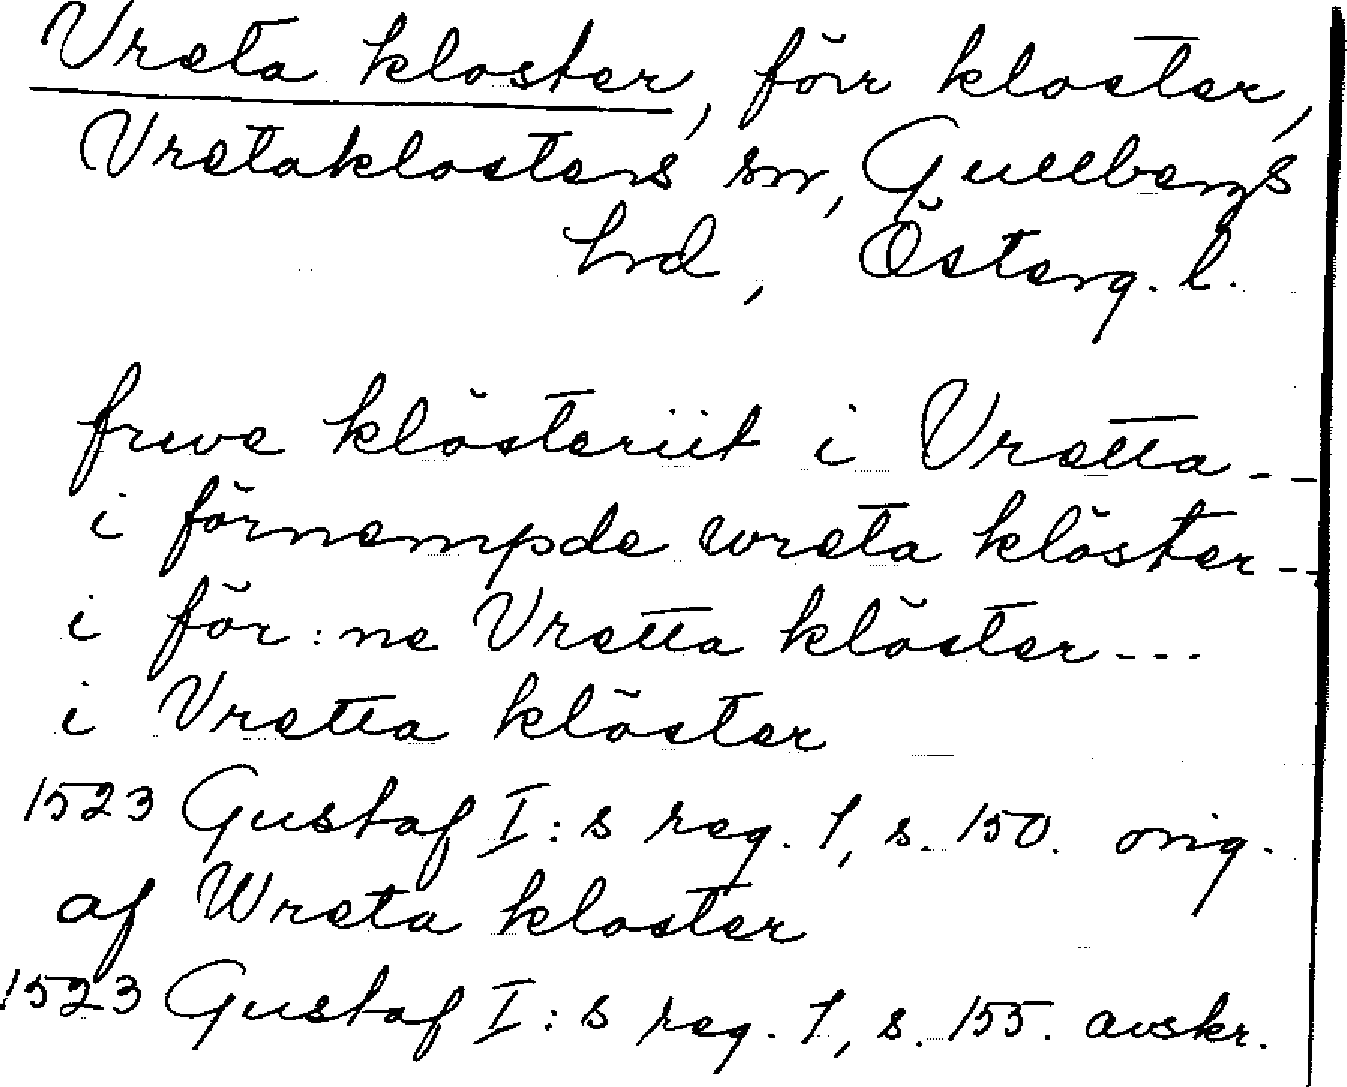 Vreta kloster, förr kloster,
Vretaklosters sn, Gullbergs
hrd, Österg. l.
fruve klösteriit i Vretta---
i förnempde wreta klöster---
i för:ne Vretta klöster---
i Vretta klöster
1523 Gustaf I:s reg. 1, s. 150. orig.
af Wreta kloster
1523 Gustaf I:s reg. 1, s. 155. avskr.